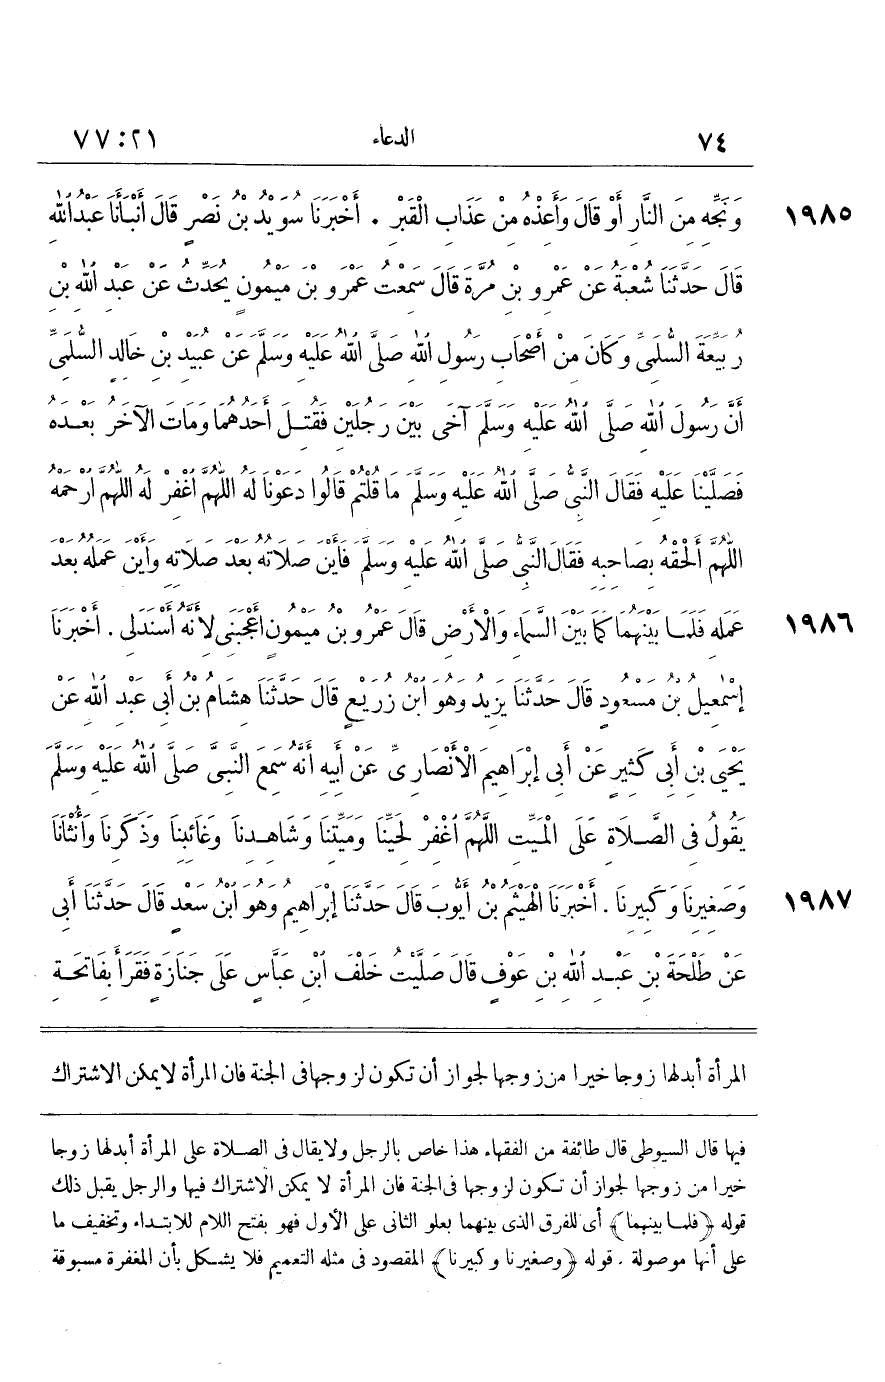 ٧٤ الدعاء ٢١ : ٧٧
١٩٨٥ وَنَجِّهِ مِنَ النَّارِ أَوْ قَالَ وَأَعِذْهُ مِنْ عَذَابِ الْقَبْرِ . أَخْبَرَنَا سُوَيْدُ بْنُ نَصْرٍ قَالَ أَنْبَأَنَا عَبْدُ اللهِ
قَالَ حَدَّثَنَا شُعْبَةُ عَنْ عَمْرِو بْنِ مُرَّةَ قَالَ سَمِعْتُ عَمْرَو بْنَ مَيْمُونٍ يُحَدِّثُ عَنْ عَبْدِ اللهِ بْنِ
رُبَيِّعَةَ السُّلَمِيِّ وَكَانَ مِنْ أَصْحَابِ رَسُولِ اللهِ صَلَّى اللهُ عَلَيْهِ وَسَلَّمَ عَنْ عُبَيْدِ بْنِ خَالِدٍ السُّلَمِيِّ
أَنَّ رَسُولَ اللهِ صَلَّى اللهُ عَلَيْهِ وَسَلَّمَ آخَى بَيْنَ رَجُلَيْنِ فَقُتِلَ أَحَدُهُمَا وَمَاتَ الْآخَرُ بَعْدَهُ
فَصَلَّيْنَا عَلَيْهِ فَقَالَ النَّبِيُّ صَلَّى اللهُ عَلَيْهِ وَسَلَّمَ مَا قُلْتُمْ قَالُوا دَعَوْنَا لَهُ اللَّهُمَّ اغْفِرْ لَهُ اللَّهُمَّ ارْحَمْهُ
اللَّهُمَّ أَلْحِقْهُ بِصَاحِبِهِ فَقَالَ النَّبِيُّ صَلَّى اللهُ عَلَيْهِ وَسَلَّمَ فَأَيْنَ صَلَاتُهُ بَعْدَ صَلَاتِهِ وَأَيْنَ عَمَلُهُ بَعْدَ
١٩٨٦ عَمَلِهِ فَلَمَا بَيْنَهُمَا كَمَا بَيْنَ السَّمَاءِ وَالْأَرْضِ قَالَ عَمْرُو بْنُ مَيْمُونٍ أَعْجَبَنِي لِأَنَّهُ أَسْنَدَ لِي . أَخْبَرَنَا
إِسْمٰعِيلُ بْنُ مَسْعُودٍ قَالَ حَدَّثَنَا يَزِيدُ وَهُوَ ابْنُ زُرَيْعٍ قَالَ حَدَّثَنَا هِشَامُ بْنُ أَبِي عَبْدِ اللهِ عَنْ
يَحْيَى بْنِ أَبِي كَثِيرٍ عَنْ أَبِي إِبْرَاهِيمَ الْأَنْصَارِيِّ عَنْ أَبِيهِ أَنَّهُ سَمِعَ النَّبِيَّ صَلَّى اللهُ عَلَيْهِ وَسَلَّمَ
يَقُولُ فِي الصَّلَاةِ عَلَى الْمَيِّتِ اللَّهُمَّ اغْفِرْ لِحَيِّنَا وَمَيِّتِنَا وَشَاهِدِنَا وَغَائِبِنَا وَذَكَرِنَا وَأُنْثَانَا
١٩٨٧ وَصَغِيرِنَا وَكَبِيرِنَا . أَخْبَرَنَا الْهَيْثَمُ بْنُ أَيُّوبَ قَالَ حَدَّثَنَا إِبْرَاهِيمُ وَهُوَ ابْنُ سَعْدٍ قَالَ حَدَّثَنَا أَبِي
عَنْ طَلْحَةَ بْنِ عَبْدِ اللهِ بْنِ عَوْفٍ قَالَ صَلَّيْتُ خَلْفَ ابْنِ عَبَّاسٍ عَلَى جَنَازَةٍ فَقَرَأَ بِفَاتِحَةِ
المرأة أبدلها زوجا خيرا من زوجها لجواز أن تكون لزوجها فى الجنة فان المرأة لا يمكن الاشتراك
فيها قال السيوطى قال طائفة من الفقهاء هذا خاص بالرجل ولا يقال فى الصلاة على المرأة أبدلها زوجا
خيرا من زوجها لجواز أن تكون لزوجها فى الجنة فان المرأة لا يمكن الاشتراك فيها والرجل يقبل ذلك
قوله ﴿فلما بينهما﴾ أى للفرق الذى بينهما بعلو الثانى على الأول فهو بفتح اللام للابتداء وتخفيف ما
على أنها موصولة . قوله ﴿وصغيرنا وكبيرنا﴾ المقصود فى مثله التعميم فلا يشكل بأن المغفرة مسبوقة